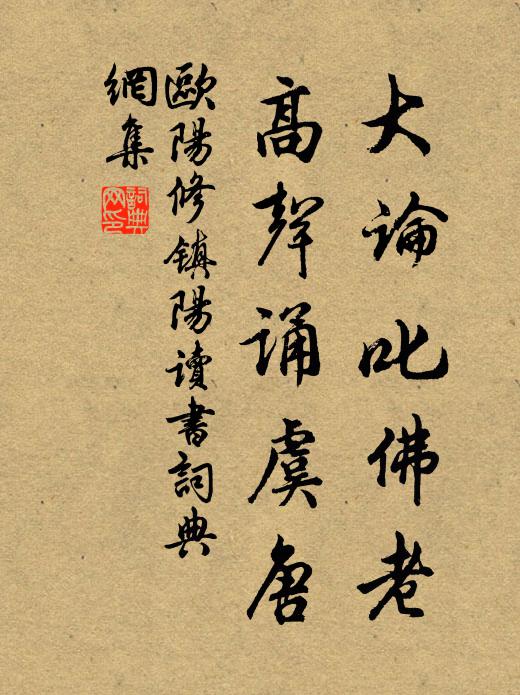 大論叱佛老
高聲誦虞唐
歐陽修鎮陽讀書詞典
網集
詞典
网印